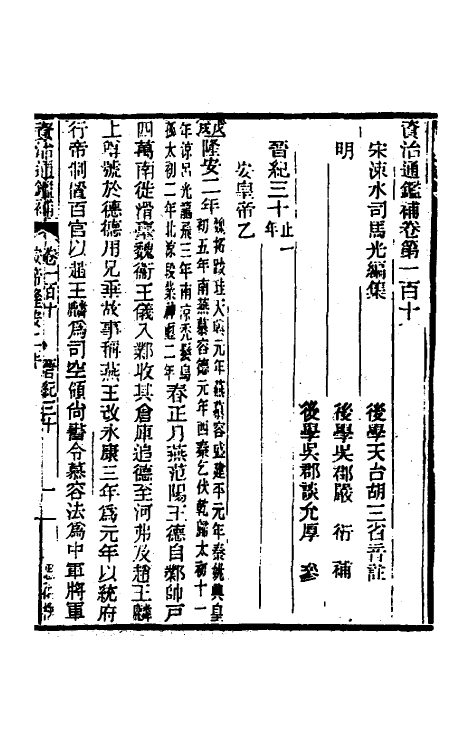 資治通鑑補卷第一百十
宋涑水司馬光編集
後學天台胡三省音註
明
後學吳郡嚴衍補
後學吳郡談允厚參
晉紀三十止一年
安皇帝乙
戊戌隆安二年魏拓跋珪天興元年燕慕容盛建平元年秦姚興皇
初五年南燕慕容德元年西秦乞伏乾歸太初十一
年涼呂光龍飛三年南涼禿髮烏
孤太初二年北涼段業神璽二年春正月燕范陽王德自鄴帥戶
四萬南徙滑臺魏衛王儀入鄴收其倉庫追德至河弗及趙王麟
上尊號於德德用兄垂故事稱燕王改永康三年為元年以統府
行帝制置百官以趙王麟為司空領尚書令慕容法為中軍將軍
資治通鑑補
卷一百十
晉紀三十
一